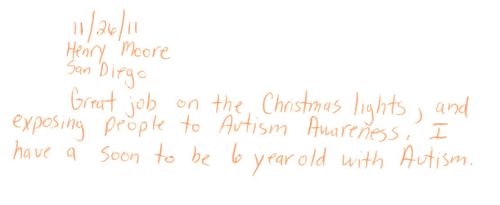 11/26/11
Henry Moore
San Diego
Great job on the Christmas lights, and
exposing people to Autism Awareness. I
have a soon to be 6 year old with Autism.